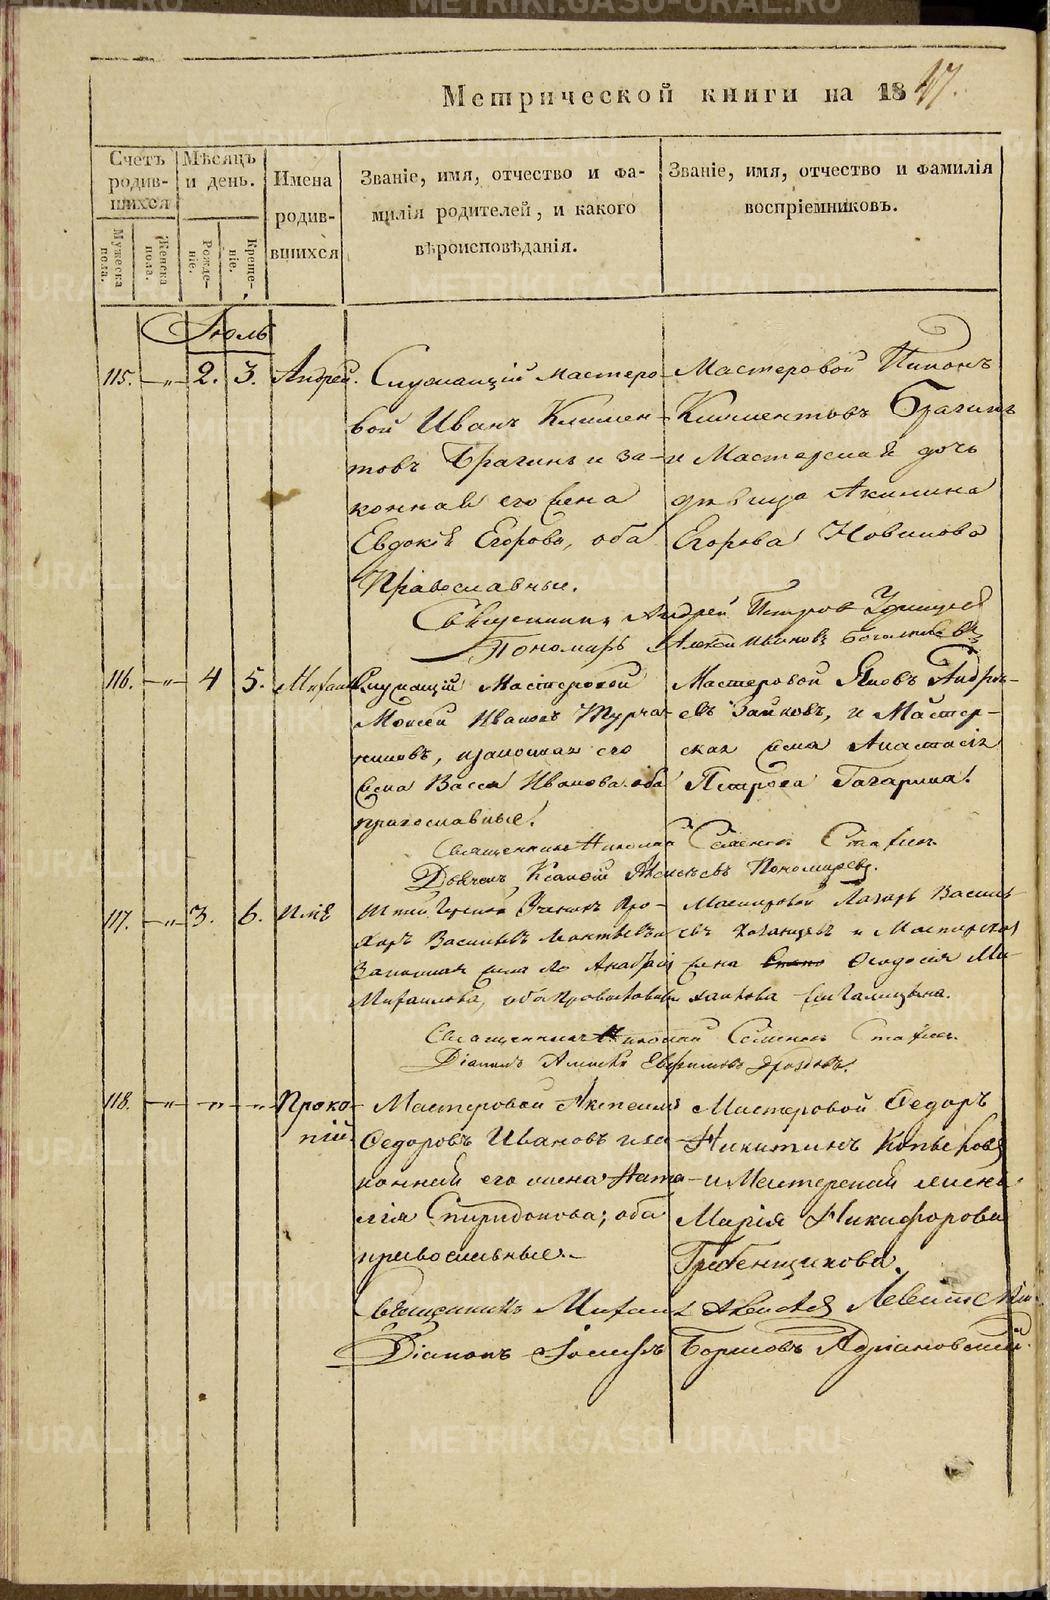 METRIKI.GASO-URAL.RU
Метрической книги на 1847.
Счетъ родив-шихся
Мѣсяцъ и день.
Имена родив-вшихся
Званіе, имя, отчество и фа-
милія родителей, и какого
вѣроисповѣданія.
Званіе, имя, отчество и фамилія
воспріемниковъ.
Мужеска пола.
Женска пола.
Рожде-ніе.
Креще-ніе.
Іюль
115. —„— 2. 3. Андрей.
Служащій мастеро-
вой Иванъ Климен-
товъ Брагинъ и за-
конная его жена
Евдокія Егорова, оба
Православные.
Мастеровой
Климентовъ Брагинъ
и Мастерская дочь
дѣвица Акилина
Егорова Новикова
Священникъ Андрей Петровъ
Пономарь
116. —„— 4 5. Михаилъ
Служащій Мастеровой
Моисей Ивановъ Турча-
ниновъ, и законная его
жена Васса Иванова оба
православные.
Мастеровой Яковъ Андре-
евъ Зайковъ, и Мастер-
ская жена Анастасія
Петрова Гагарина.
Священникъ Николай Семеновъ
Дьячекъ Пономаревъ.
117. —„— 3. 6. Илія
Ученикъ Про-
хоръ Васильевъ
Законная жена его
Михаилова, оба православные
Мастеровой Лазарь Василь-
евъ и Мастерская
жена Ѳеодосія Ми-
хаилова
Священникъ Николай Семеновъ
Діаконъ Алексѣй Дроздовъ.
118. —„— —„— —„— Проко-
пій
Мастеровой
Ѳедоровъ Ивановъ и за-
конная его жена Ната-
лія Спиридонова; оба
православные.
Мастеровой Ѳедоръ
Никитинъ
и Мастерская жена
Марія Никифорова
Гребенщикова.
Священникъ Михаилъ Левитскій.
Діаконъ Іосифъ Борисовъ Адріановскій.